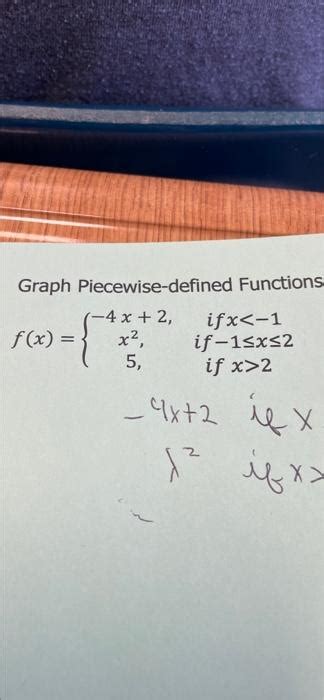 Graph Piecewise-defined Functions
f(x) = { -4 x + 2, if x<-1
x², if -1≤x≤2
5, if x>2
-4x+2 if x
x² if x>